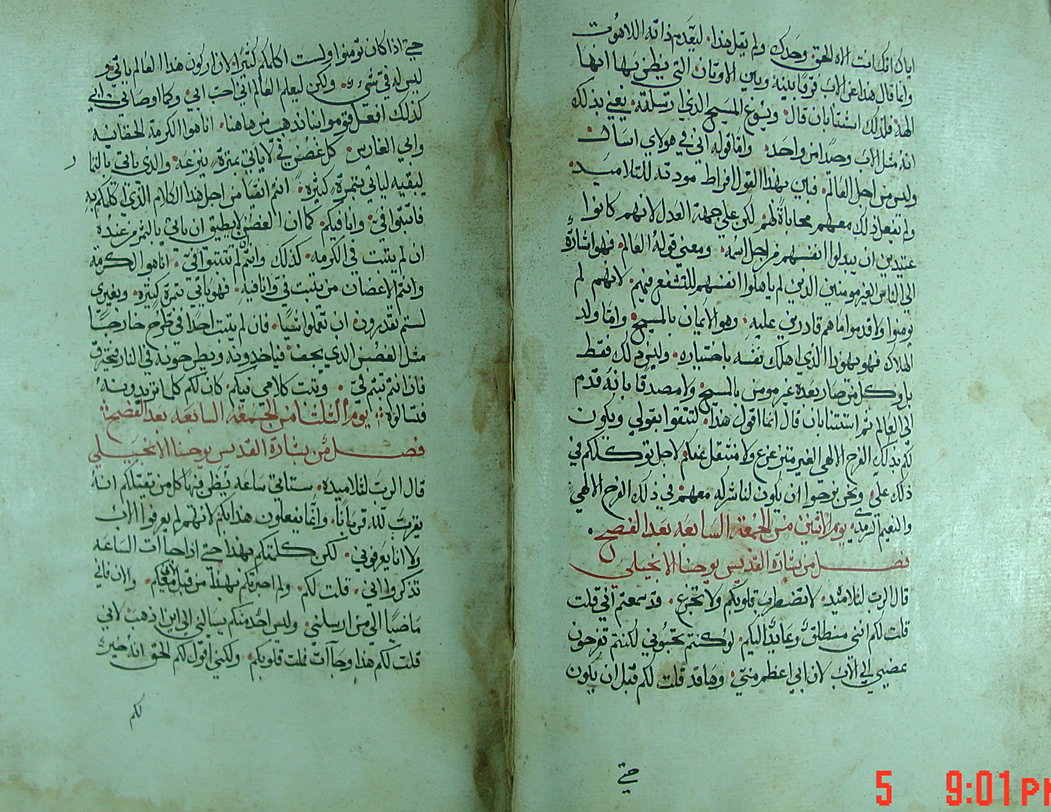 اياك انك انت الاه الحق وحدك ولم يقل هذا ليقدم ذاته اللاهوت
وانما قال هذا عن الاب فرقا بينه وبين الاوثان التي يظن بها انها
الهة فلذلك استثنا بان قال ويسوع المسيح الذي ارسلته يعني بذلك
انه مثل الاب وحدا من واحد واما قوله اني في هولاي اسال
وليس من اجل العالم فابين بهذا القول افراط مودته للتلاميد
ولم تفعل ذلك معهم محاباة لهم لكن علي جهة العدل لانهم كانوا
عتيدين ان يبدلوا انفسهم من اجل اسمه ومعني قوله العالم فهو اشارة
الي الناس الغير مومنين الذين لم ياهلوا انفسهم للتشفع فيهم لانهم لم
يومنوا ولا قدموا ما هم قادرين عليه وهو الايمان بالمسيح واما ولد
الهلاك فهو يهودا الذي اهلك نفسه باختياره وليس ذلك فقط
بل وكل من صار بعده غير مومن بالمسيح ولا مصدقا بانه قدم
الي العالم ثم استثنا بان قال انما اقول هذا لتثقوا بقولي ويكون
لكم بذلك الفرح الالهي الغير متزعزع ولا منتقل عنكم لاجل توكلكم في
ذلك علي ونحن نرجوا ان يكون لنا شركه معهم في ذلك الفرح الالهي
والنعيم الابدي يوم الاثنين من الجمعه السابعه بعد الفصح
فصل من بشارة القديس يوحنا الانجيلي
قال الرب لتلاميده لا تضطرب قلوبكم ولا تجزع قد سمعتم اني قلت
قلت لكم انني منطلق وعايد اليكم لو كنتم تحبوني لكنتم تفرحون
بمضيي الي الاب لان ابي اعظم مني وها قد قلت لكم قبل ان يكون
حتي
حتي اذا كان تومنوا ولست اكلمكم كثيرا لان اركون هذا العالم ياتي و
ليس له في شي ولكن ليعلم العالم اني احب ابي وكما وصاني ابي
كذلك افعل قوموا بنا نذهب من هاهنا انا هو الكرمة الحقانيه
وابي الغارس كل غصن في لا ياتي بثمرة ينزعه والذي ياتي بالثمار
ينقيه لياتي بثمرة كثيرة انتم انقيا من اجل هذا الكلام الذي كلمتكم به
فاثبتوا في وانا فيكم كما ان الغصن لا يطيق ان ياتي بالثمر من عنده
ان لم يثبت في الكرمه كذلك وانتم ان لم تثبتوا في انا هو الكرمة
وانتم الاغصان من يثبت في وانا فيه فهو ياتي بثمرة كثيره وبغيري
لستم تقدرون ان تعملوا شيا فان لم يثبت احدا في طرح خارجا
مثل الغصن الذي يجف فياخدونه ويطرحونه في النار فيحترق
فان انتم ثبتم في وثبت كلامي فيكم كان لكم كلما تريدونه
فتسالوا يوم الثلثا من الجمعه السابعه بعد الفصح
فصل من بشارة القديس يوحنا الانجيلي
قال الرب لتلاميده ستاتي ساعه يظن فيها كل من يقتلكم انه
يقرب لله قربانا وانما يفعلون هذا بكم لانهم لم يعرفوا الاب
ولا انا يعرفوني لكن كلمتكم بهذا حتي اذا جاات الساعه
تذكروا اني قلت لكم ولم اخبركم بهذا من قبل لاني معكم والان فاني
ماضيا الي من ارسلني وليس احد منكم يسالني الي اين تذهب لاني
قلت لكم هذا وجاات فملت قلوبكم ولكني اقول لكم الحق انه خير
لكم
5 9:01 PM